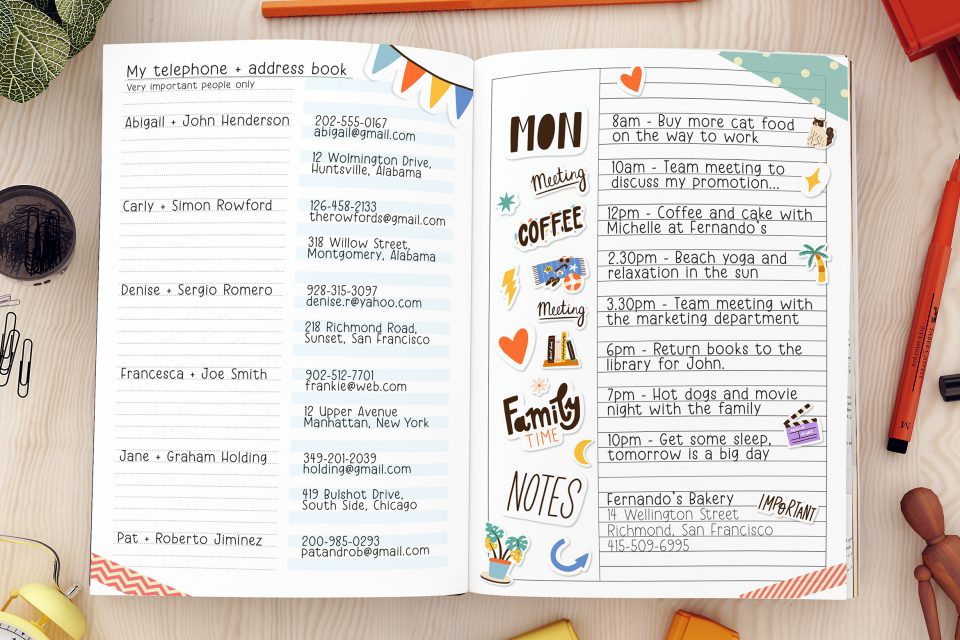 My telephone + address book
Very important people only
Abigail + John Henderson
202-555-0167
abigail@gmail.com
12 Wolmington Drive,
Huntsville, Alabama
Carly + Simon Rowford
126-458-2133
therowfords@gmail.com
318 Willow Street,
Montgomery, Alabama
Denise + Sergio Romero
928-315-3097
denise.r@yahoo.com
218 Richmond Road,
Sunset, San Francisco
Francesca + Joe Smith
902-512-7701
frankie@web.com
12 Upper Avenue
Manhattan, New York
Jane + Graham Holding
349-201-2039
holding@gmail.com
419 Bulshot Drive,
South Side, Chicago
Pat + Roberto Jiminez
200-985-0293
patandrob@gmail.com
MON
Meeting
COFFEE
Meeting
Family
TIME
NOTES
8am - Buy more cat food
on the way to work
10am - Team meeting to
discuss my promotion...
12pm - Coffee and cake with
Michelle at Fernando's
2.30pm - Beach yoga and
relaxation in the sun
3.30pm - Team meeting with
the marketing department
6pm - Return books to the
library for John.
7pm - Hot dogs and movie
night with the family
10pm - Get some sleep,
tomorrow is a big day
Fernando's Bakery
14 Wellington Street
Richmond, San Francisco
415-509-6995
IMPORTANT